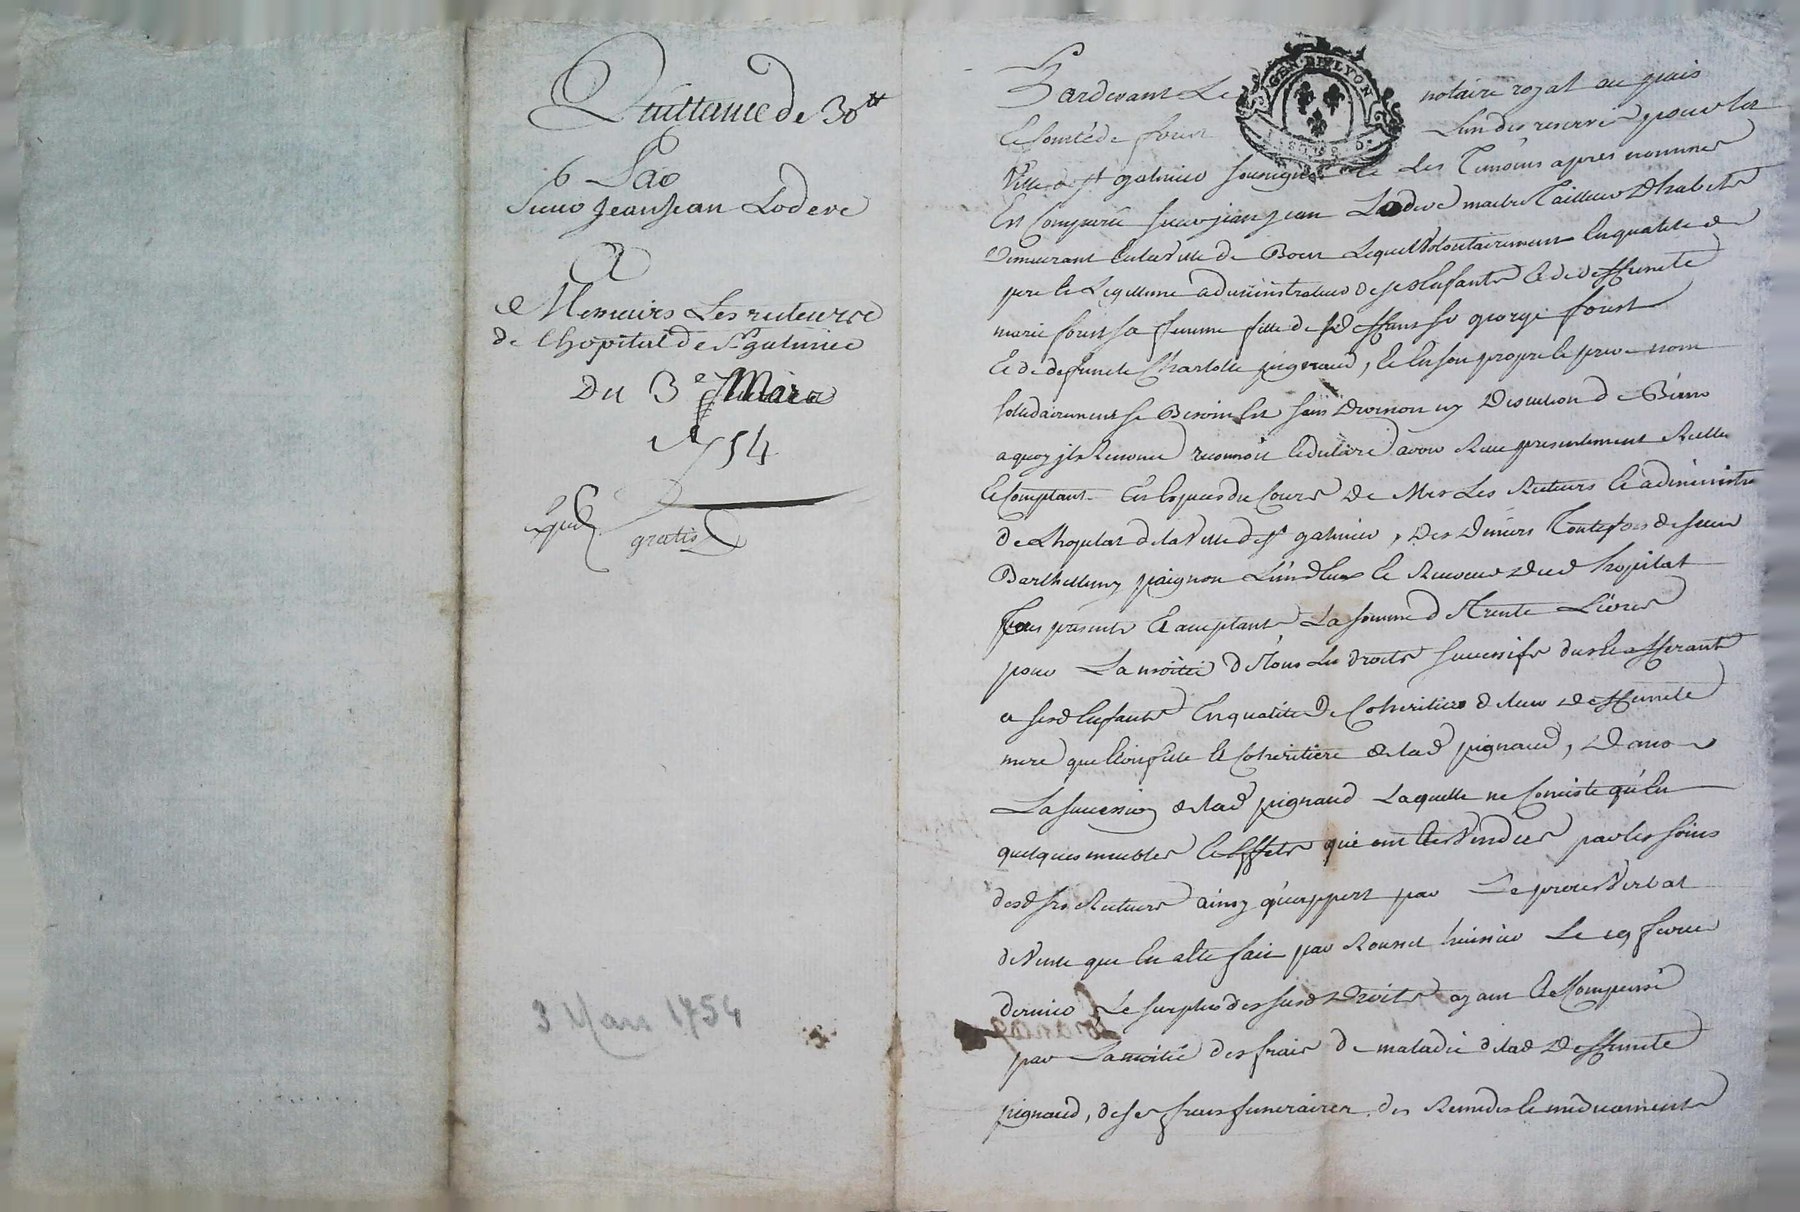 Quittance de 30 tt
Par
Sieur Jean Jean Lodeve
A
Messieurs Les recteurs
de l'hopital de St galmier
Du 3e Mars
1754
gratis
3 Mars 1754
GEN. DE LYON
Pardevant Le notaire royal au païs
et Comté de forest L'un des reservés pour la
Ville de st galmier soussigné et Les Temoins apres nommés
Est Comparu sieur jean jean Lodeve maitre Tailleur D'habits
Demeurant en la Ville de Boen Lequel Volontairement En qualité de
pere et Legitime administrateur de ses Enfants et de deffuncte
marie forest sa femme fille de deffunt sr george forest
et de defuncte Charlotte pignaud, et En son propre et privé nom
solidairement se Besoin Est sans Division ny Discution de Biens
a quoy il a Renoncé reconnoit et declare avoir Receu presentement Reellem
et Comptant En Especes du Cours De Mrs Les Recteurs et administr
De L'hopital de la Ville de st galmier, Des Deniers Toutefois de sieur
Barthellemy paignon L'un d'eux et Receveur dud hopital
presents et acceptants La somme de Trente Livres
pour La moitié de Tous Les droits successifs dus et afferants
a sesd Enfants En qualité de Coheritiers de leur deffuncte
mere quelle vivoit fille et Coheritiere de lad pignaud, Dans
La succession de lad pignaud Laquelle ne Consiste qu'en
quelques meubles et Effets qui ont été Vendus par les soins
desd srs Recteurs ainsy qu'appert par Le procés Verbal
de Vente qui En a été fait par Rousset huissier Le 19 fevrier
dernier Le surplus des susd Droits ayant été Compensé
par La moitié des frais de maladie de lad Deffuncte
pignaud, de ses frais funeraires, des Remedes et medicaments